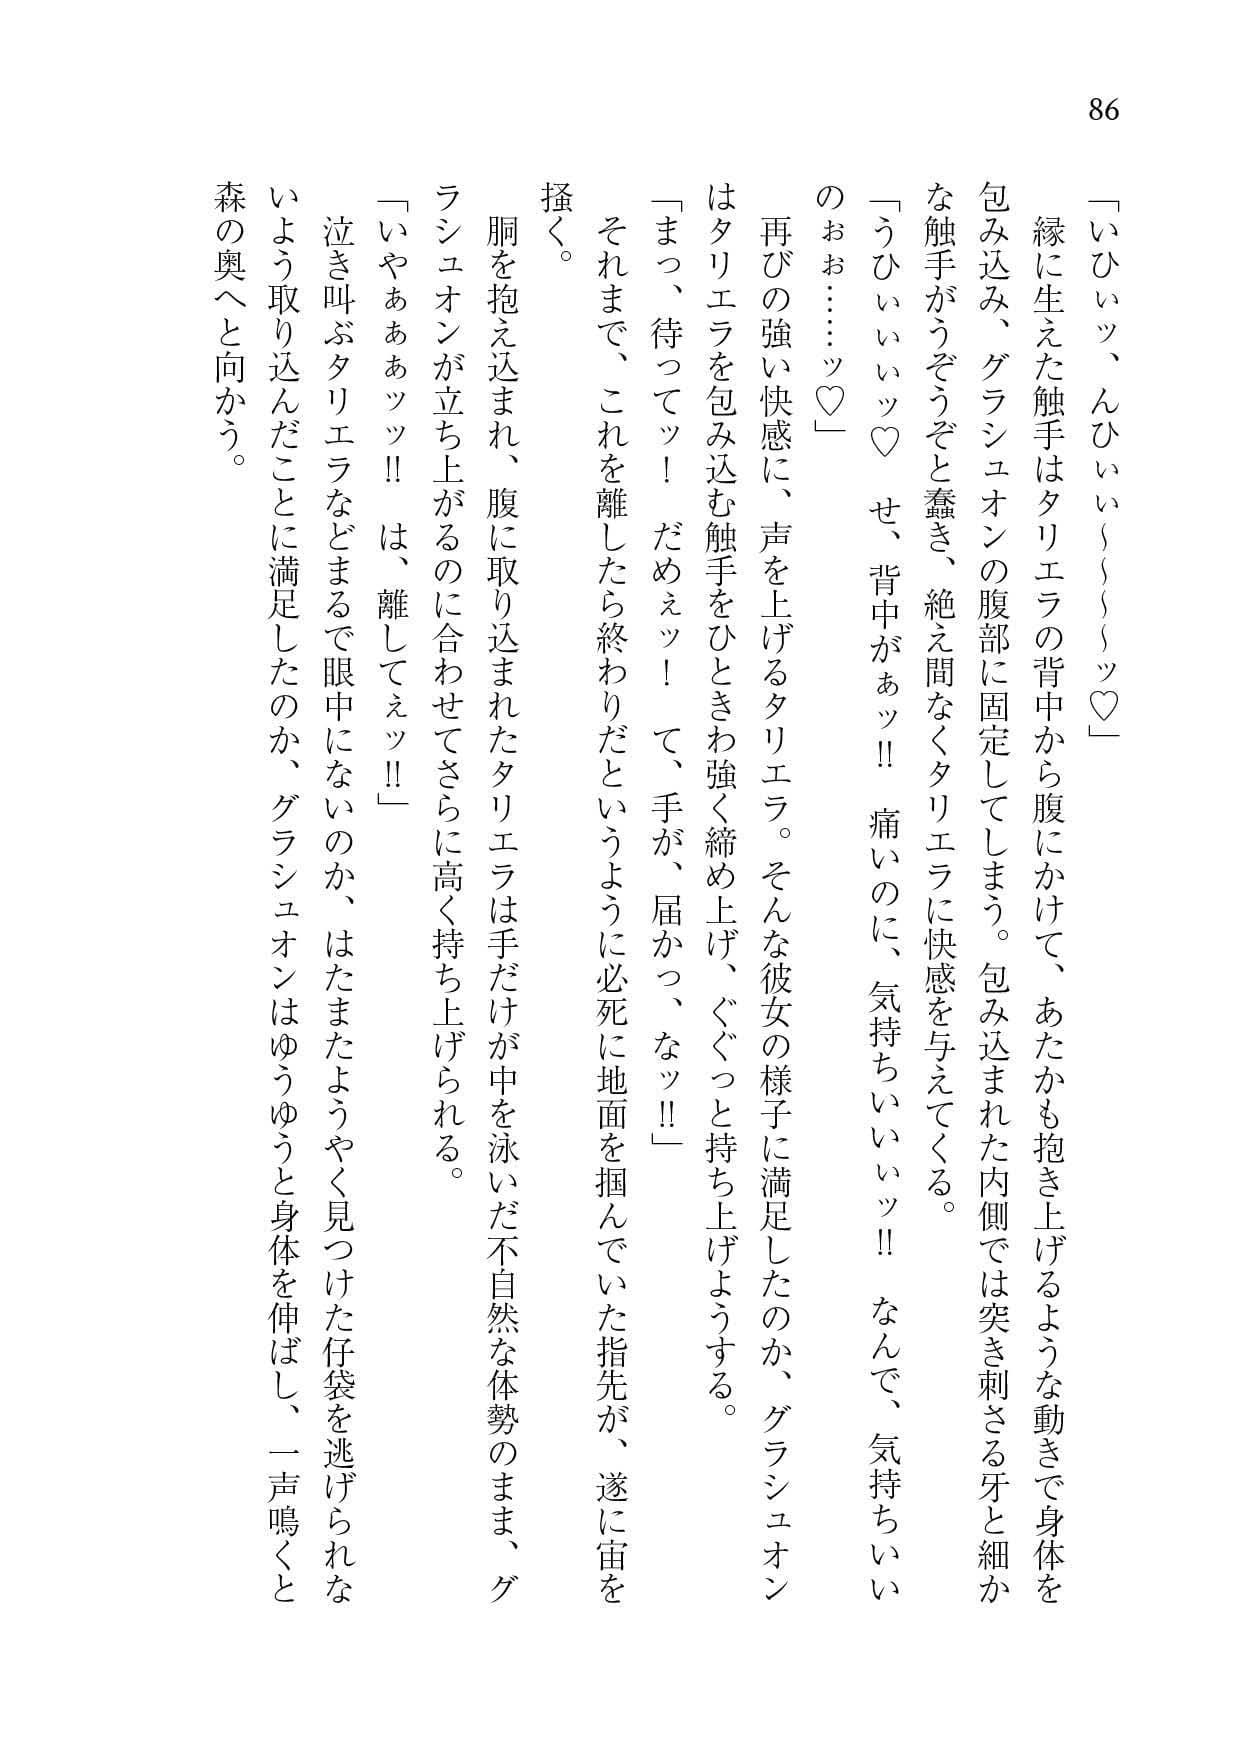 86
「いひぃッ、んひぃぃ～～～～ッ♡」
　縁に生えた触手はタリエラの背中から腹にかけて、あたかも抱き上げるような動きで身体を
包み込み、グラシュオンの腹部に固定してしまう。包み込まれた内側では突き刺さる牙と細か
な触手がうぞうぞと蠢き、絶え間なくタリエラに快感を与えてくる。
「うひぃぃぃッ♡　せ、背中がぁッ‼　痛いのに、気持ちいいぃッ‼　なんで、気持ちいい
のぉぉ……ッ♡」
　再びの強い快感に、声を上げるタリエラ。そんな彼女の様子に満足したのか、グラシュオン
はタリエラを包み込む触手をひときわ強く締め上げ、ぐぐっと持ち上げようする。
「まっ、待ってッ！　だめぇッ！　て、手が、届かっ、なッ‼」
　それまで、これを離したら終わりだというように必死に地面を掴んでいた指先が、遂に宙を
掻く。
　胴を抱え込まれ、腹に取り込まれたタリエラは手だけが中を泳いだ不自然な体勢のまま、グ
ラシュオンが立ち上がるのに合わせてさらに高く持ち上げられる。
「いやぁぁぁッッ‼　は、離してぇッ‼」
　泣き叫ぶタリエラなどまるで眼中にないのか、はたまたようやく見つけた仔袋を逃げられな
いよう取り込んだことに満足したのか、グラシュオンはゆうゆうと身体を伸ばし、一声鳴くと
森の奥へと向かう。